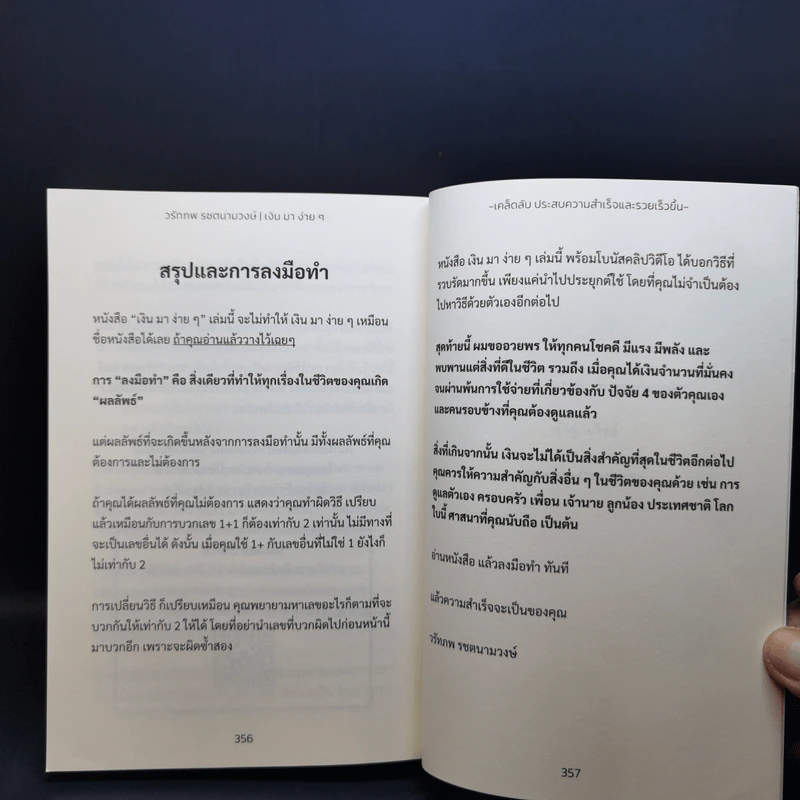 วรัทภพ รชตนามวงษ์ | เงิน มา ง่าย ๆ
สรุปและการลงมือทำ
หนังสือ “เงิน มา ง่าย ๆ” เล่มนี้ จะไม่ทำให้ เงิน มา ง่าย ๆ เหมือน
ชื่อหนังสือได้เลย ถ้าคุณอ่านแล้ววางไว้เฉยๆ
การ “ลงมือทำ” คือ สิ่งเดียวที่ทำให้ทุกเรื่องในชีวิตของคุณเกิด
“ผลลัพธ์”
แต่ผลลัพธ์ที่จะเกิดขึ้นหลังจากการลงมือทำนั้น มีทั้งผลลัพธ์ที่คุณ
ต้องการและไม่ต้องการ
ถ้าคุณได้ผลลัพธ์ที่คุณไม่ต้องการ แสดงว่าคุณทำผิดวิธี เปรียบ
แล้วเหมือนกับการบวกเลข 1+1 ก็ต้องเท่ากับ 2 เท่านั้น ไม่มีทางที่
จะเป็นเลขอื่นได้ ดังนั้น เมื่อคุณใช้ 1+ กับเลขอื่นที่ไม่ใช่ 1 ยังไงก็
ไม่เท่ากับ 2
การเปลี่ยนวิธี ก็เปรียบเหมือน คุณพยายามหาเลขอะไรก็ตามที่จะ
บวกกันให้เท่ากับ 2 ให้ได้ โดยที่อย่านำเลขที่บวกผิดไปก่อนหน้านี้
มาบวกอีก เพราะจะผิดซ้ำสอง
356
-เคล็ดลับ ประสบความสำเร็จและรวยเร็วขึ้น-
หนังสือ เงิน มา ง่าย ๆ เล่มนี้ พร้อมโบนัสคลิปวิดีโอ ได้บอกวิธีที่
รวบรัดมากขึ้น เพียงแค่นำไปประยุกต์ใช้ โดยที่คุณไม่จำเป็นต้อง
ไปหาวิธีด้วยตัวเองอีกต่อไป
สุดท้ายนี้ ผมขออวยพร ให้ทุกคนโชคดี มีแรง มีพลัง และ
พบพานแต่สิ่งที่ดีในชีวิต รวมถึง เมื่อคุณได้เงินจำนวนที่มั่นคง
จนผ่านพ้นการใช้จ่ายที่เกี่ยวข้องกับ ปัจจัย 4 ของตัวคุณเอง
และคนรอบข้างที่คุณต้องดูแลแล้ว
สิ่งที่เกินจากนั้น เงินจะไม่ได้เป็นสิ่งสำคัญที่สุดในชีวิตอีกต่อไป
คุณควรให้ความสำคัญกับสิ่งอื่น ๆ ในชีวิตของคุณด้วย เช่น การ
ดูแลตัวเอง ครอบครัว เพื่อน เจ้านาย ลูกน้อง ประเทศชาติ โลก
ใบนี้ ศาสนาที่คุณนับถือ เป็นต้น
อ่านหนังสือ แล้วลงมือทำ ทันที
แล้วความสำเร็จจะเป็นของคุณ
วรัทภพ รชตนามวงษ์
357